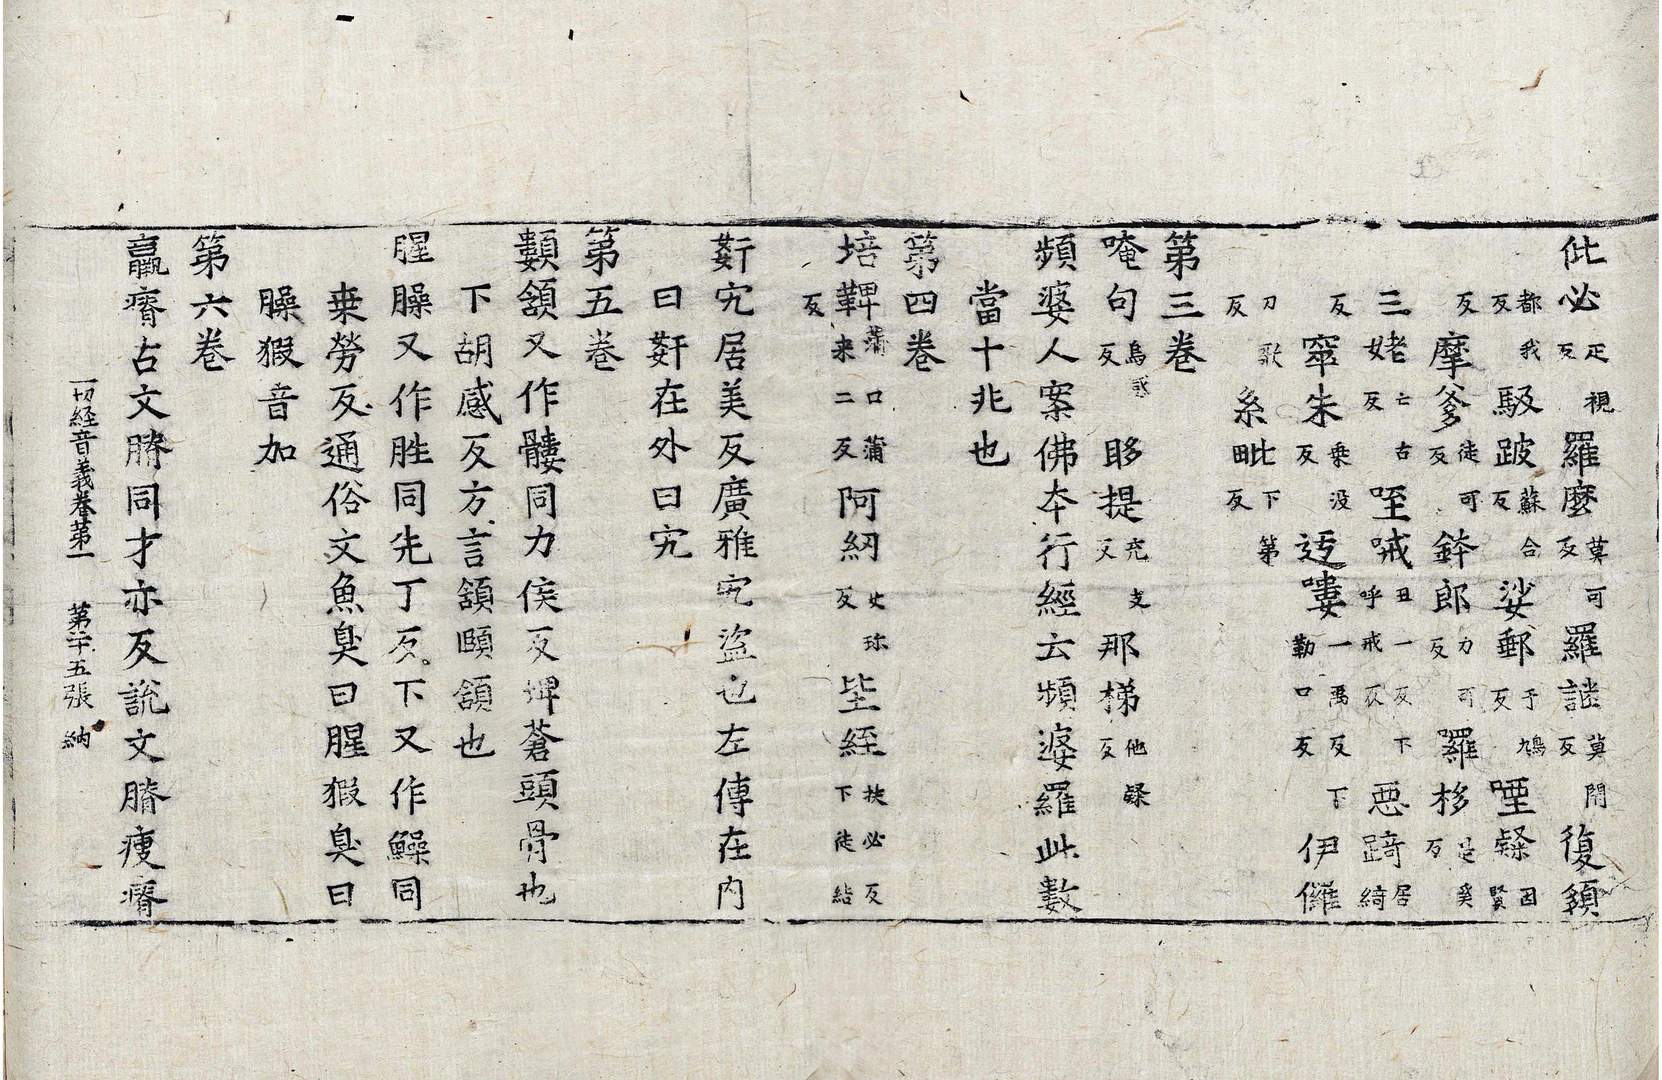 佌必視疋反羅麼莫可反羅謎莫閇反復頞
都我反駊跛蘇合反娑郵于鳩反堙鼷因賢
反摩爹徒可反鉢郎力可反囉栘是奚反
三姥亡古反咥㖑丑一反下呼戒反惡踦居綺
反窋朱乗没反迃嘍一禹反下勒口反伊儸
刀歌反系毗下第田反
第三卷
唵句烏感反眵提充支反那梯他㝵反
頻婆人案佛夲行經云頻婆羅此數
當十兆也
第四卷
培鞞蒲口蒲来二反阿紖丈珎反坒絰扶必反下徒結
反
姧宄居美反廣雅宄盜也左傳在内
曰姧在外曰宄
第五卷
顜頷又作髏同力侯反埤蒼頭骨也
下胡感反方言頷頤頷也
腥臊又作胜同先丁反下又作鱢同
桒勞反通俗文魚臭曰腥猳臭曰
臊猳音加
第六卷
羸瘠古文膌同才亦反說文膌瘦瘠
一切經音義卷苐一 第二十五張 納